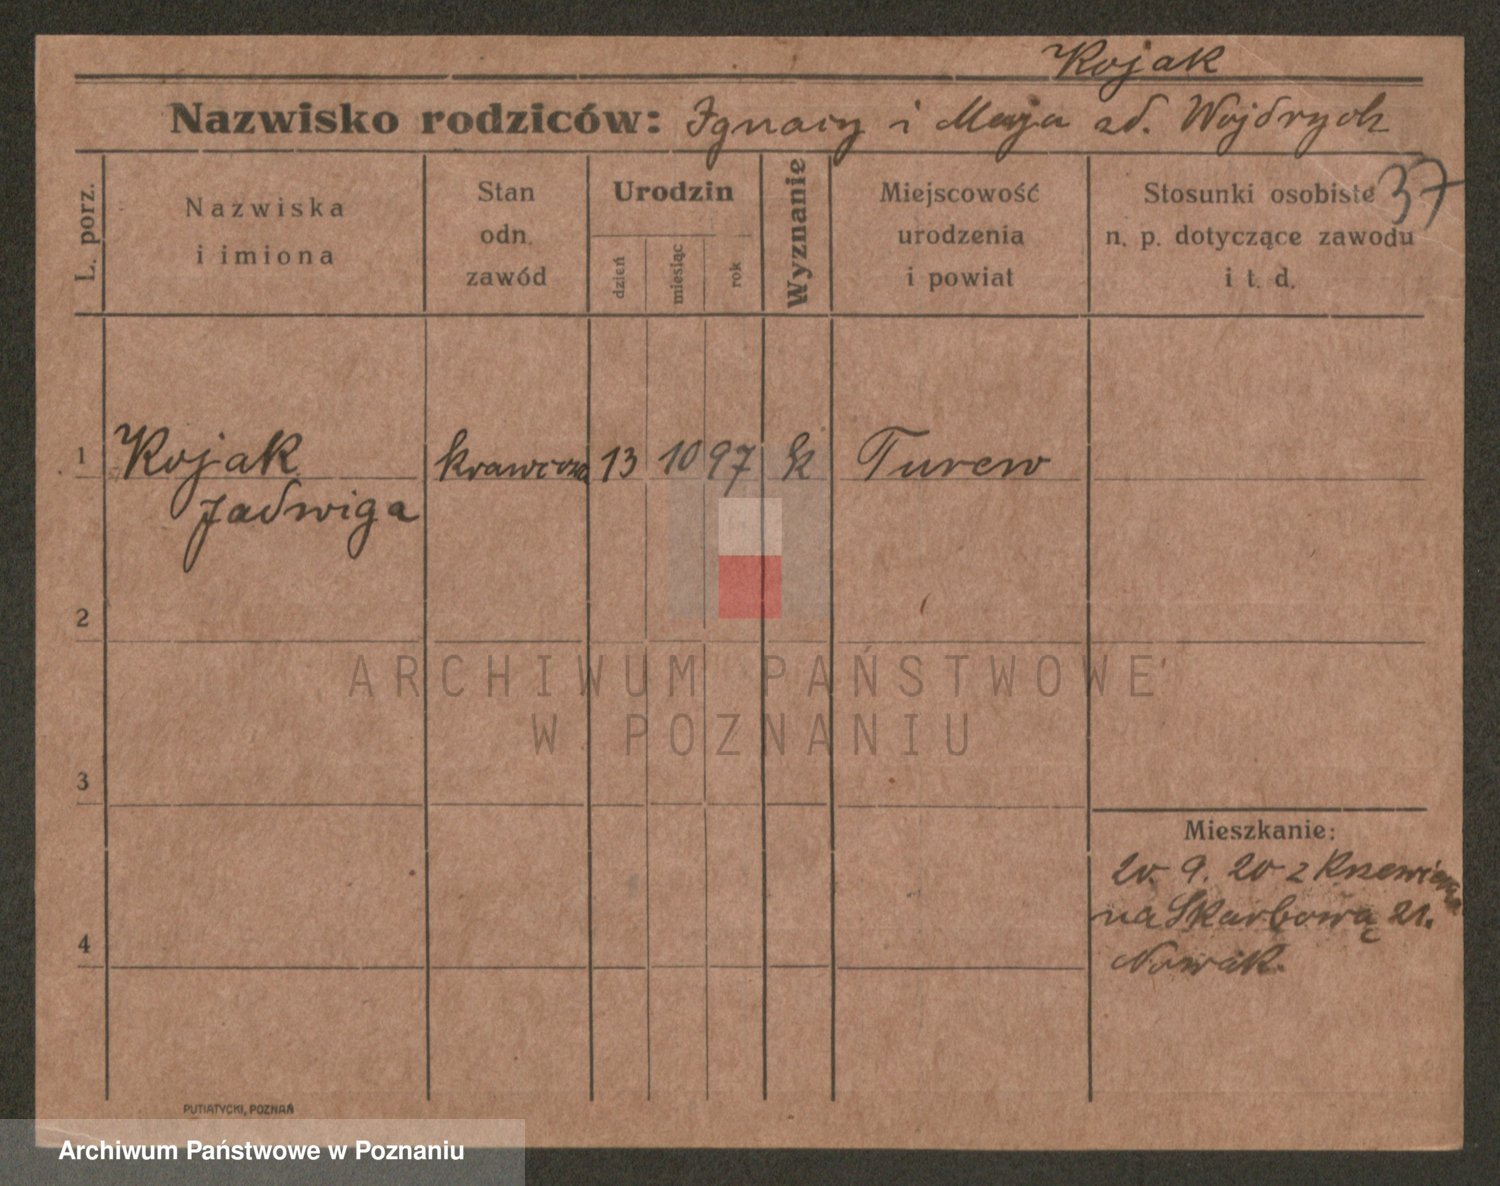 Kojak
Nazwisko rodziców: Ignacy i Maja zd. Wojdrych
37
L. porz.
Nazwiska
i imiona
Stan
odn.
zawód
Urodzin
dzień
miesiąc
rok
Wyznanie
Miejscowość
urodzenia
i powiat
Stosunki osobiste
n. p. dotyczące zawodu
i t. d.
1 Kojak krawcowa 13 10 97 k Turew
Jadwiga
2
ARCHIWUM PAŃSTWOWE
W POZNANIU
3
Mieszkanie:
20. 9. 20 z
na Skarbową 21.
4
Nowak.
PUTIATYCKI, POZNAŃ
Archiwum Państwowe w Poznaniu